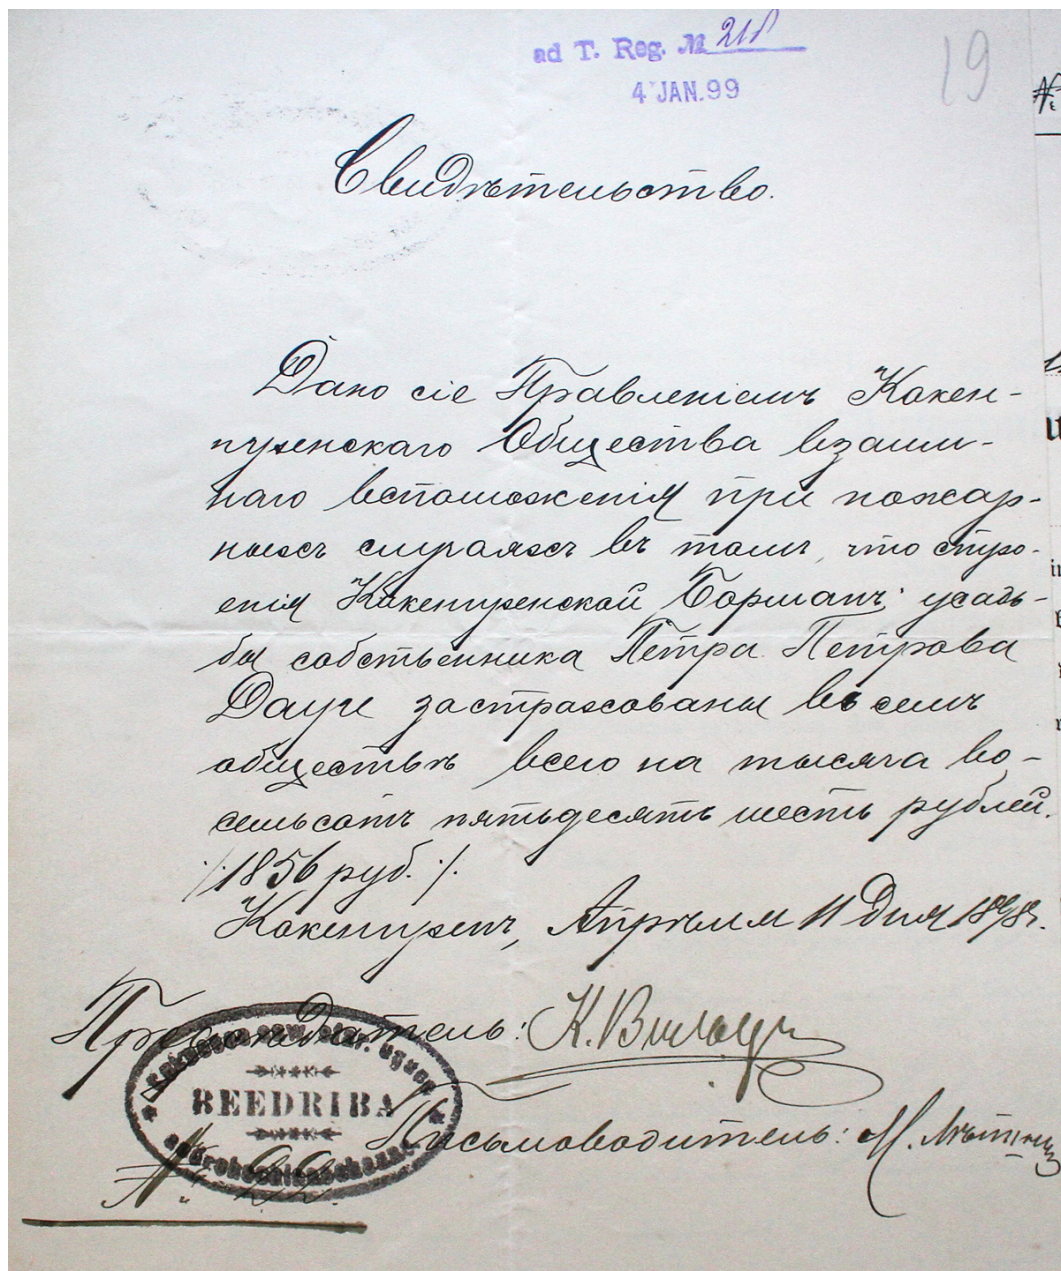 ad T. Reg. №
4 JAN. 99
19
№
Свидѣтельство.
Дано сіе Правленіемъ Кокен-
гузенскаго Общества взаим-
наго вспоможенія при пожар-
ныхъ случаяхъ въ томъ, что стро-
енія Кокенгузенской Борманъ усадь-
бы собственника Петра Петрова
Дауге застрахованы въ семъ
обществѣ всего на тысяча во-
семьсотъ пятьдесятъ шесть рублей.
/:1856 руб.:/
Кокенгузенъ, Апрѣля 11 дня 1898 г.
Предсѣдатель: К.
BEEDRIBA
Письмоводитель: М.
№ 22.